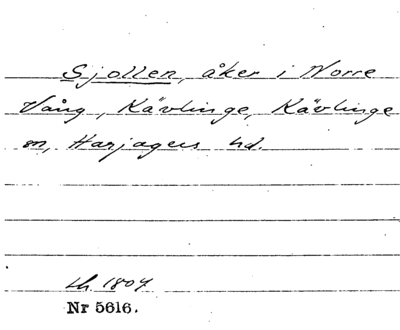 Sjollen, åker i Norre
Vång, Kävlinge, Kävlinge
sn, Harjagers hd.
Lh 1804
Nr 5616.